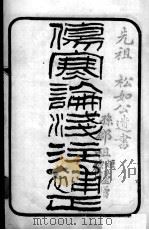 先祖 松如公遺書
傷寒論淺注補正
www.ertongbook.com